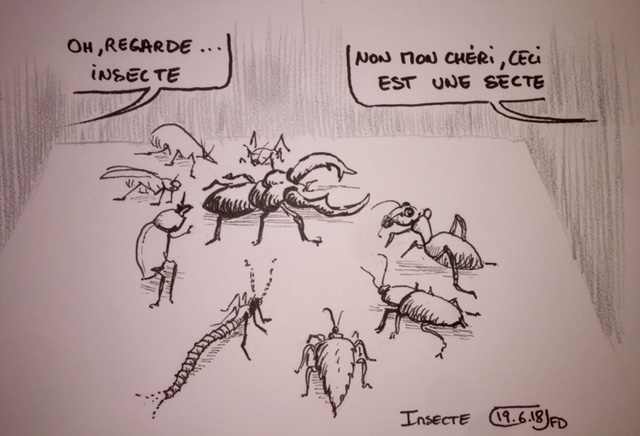 OH, REGARDE ...
INSECTE
NON MON CHÉRI, CECI
EST UNE SECTE
INSECTE 19.6.18 FD